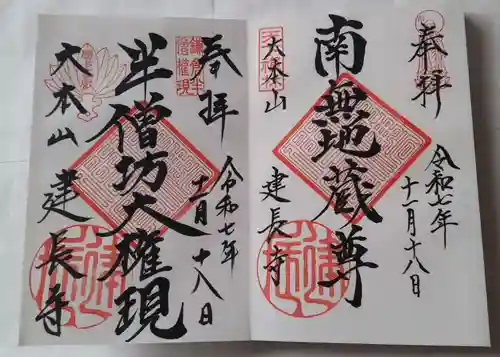 奉拝
令和七年
十一月十八日
南無地蔵尊
大本山
建長寺
奉拝
鎌倉半
僧権現
令和七年
十一月十八日
半僧坊大権現
大本山
建長寺